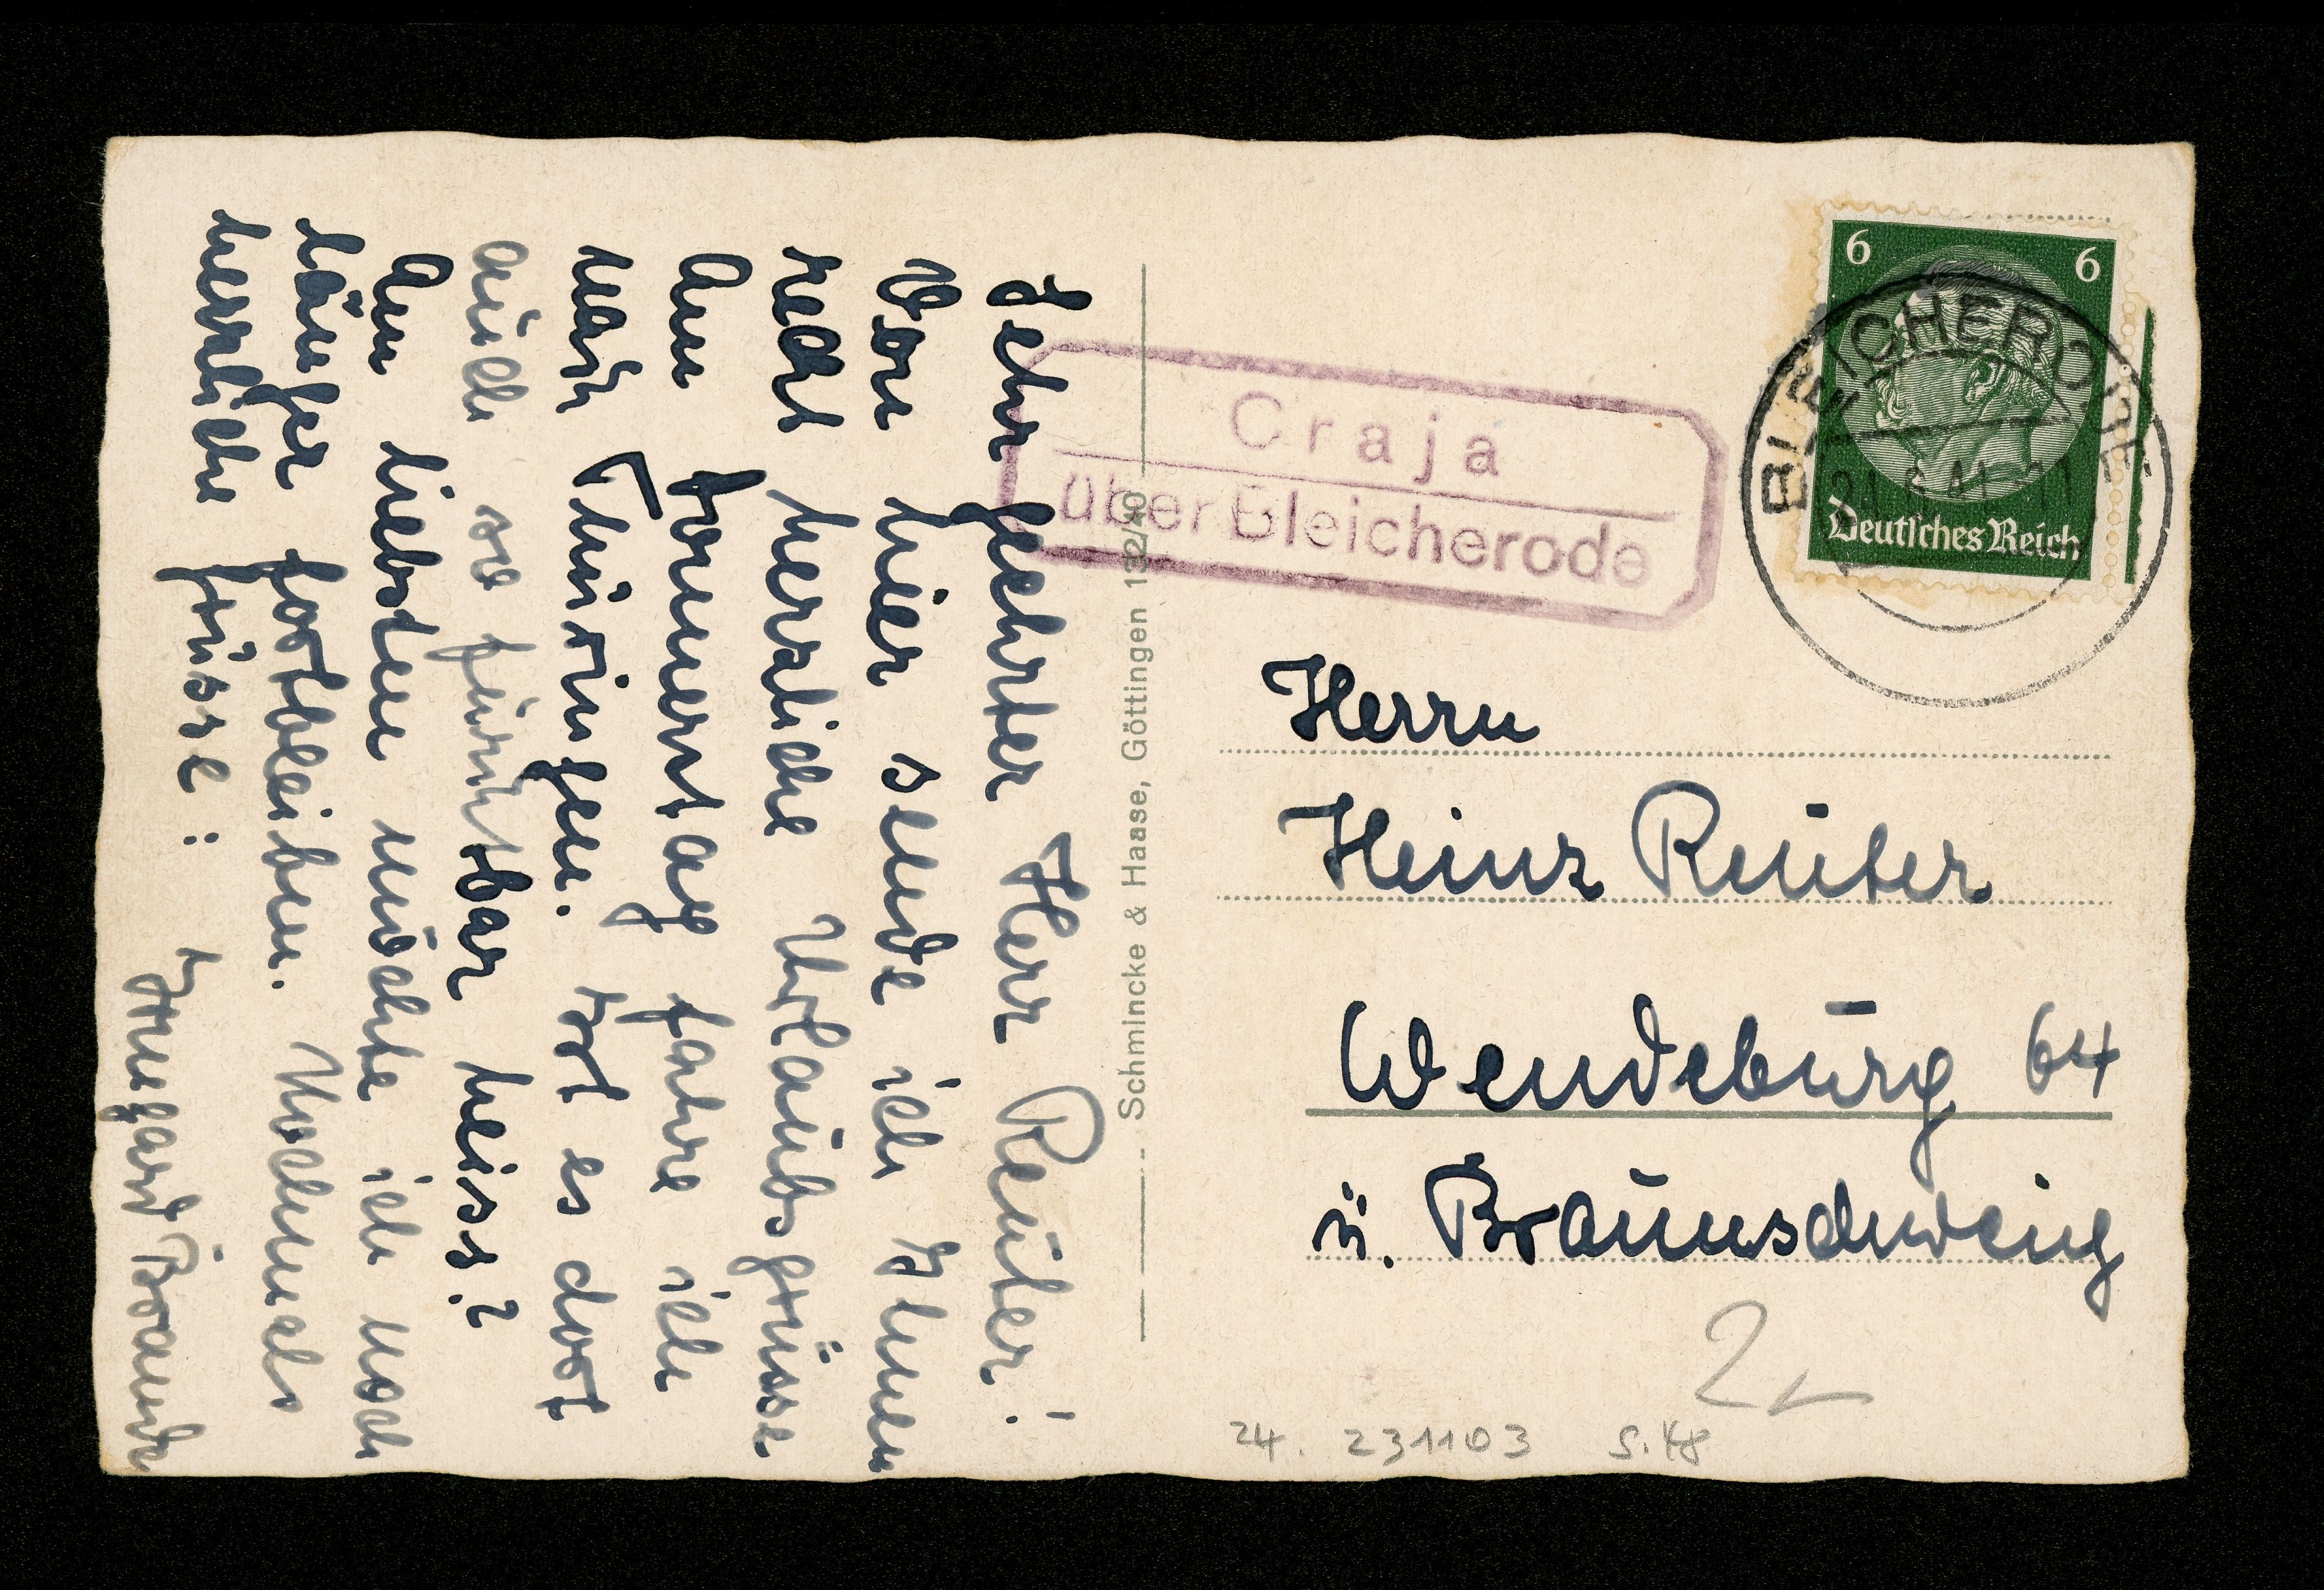 Sehr geehrter Herr Reuter!
Von hier sende ich Ihnen
recht herzliche Urlaubsgrüsse
Am Sonnerstag fahre ich
nach Thüringen. Ist es dort
auch so furchtbar heiss?
Am liebsten möchte ich noch
länger fortbleiben. Nochmals
herzliche Grüsse:
Irmgard Brandt
Schmincke & Haase, Göttingen 132/40
Craja
über Bleicherode
6 6
BLEICHERODE
Deutsches Reich
Herrn
Heinz Reuter
Wendeburg 64
ü. Braunschweig
24. 231103 S.48